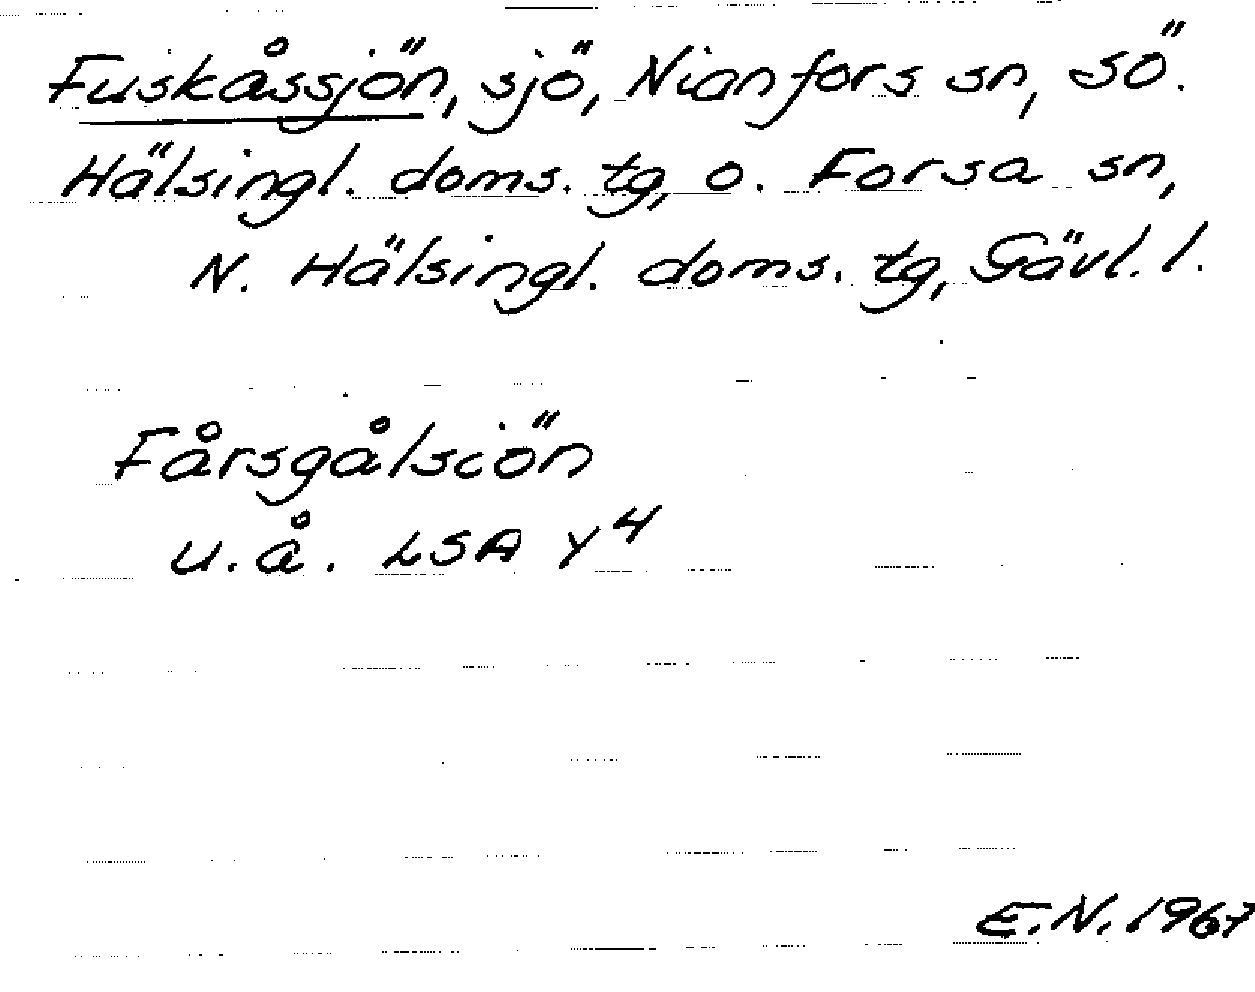 Fuskåssjön, sjö, Nianfors sn, sö.
Hälsingl. doms. tg, o. Forsa sn,
N. Hälsingl. doms. tg, Gävl. l.
Fårsgålsciön
u.å. LSA Y4
E.N. 1967